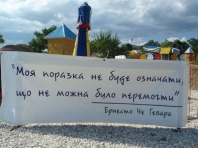 "Моя поразка не буде означати,
що не можна було перемогти"
Ернесто Че Гевара